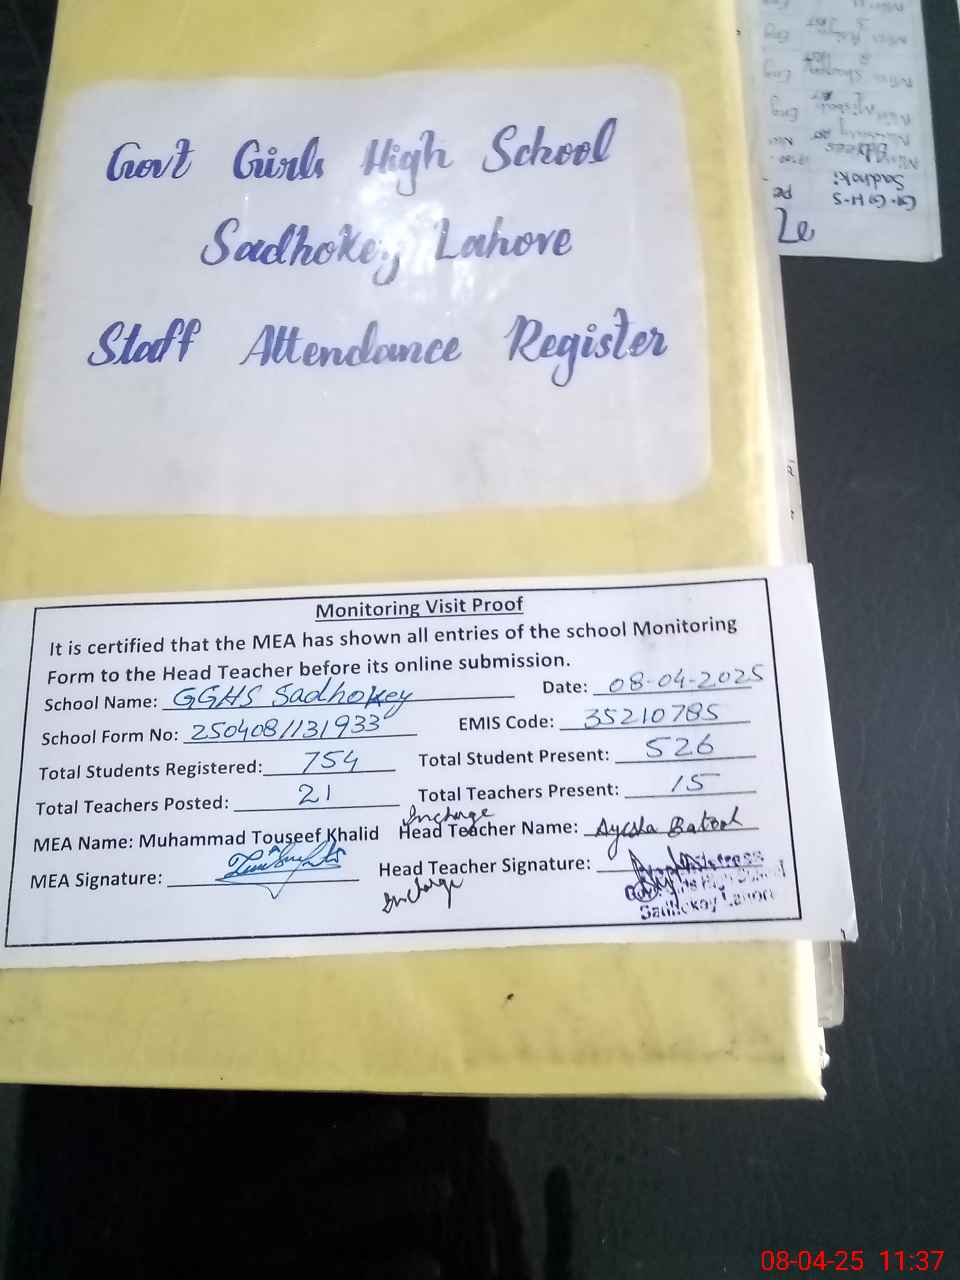 Govt Girls High School
Sadhokey Lahore
Staff Attendance Register
Monitoring Visit Proof
It is certified that the MEA has shown all entries of the school Monitoring
Form to the Head Teacher before its online submission.
School Name: GGHS Sadhokey Date: 08-04-2025
School Form No: 250408/131933 EMIS Code: 35210785
Total Students Registered: 754 Total Student Present: 526
Total Teachers Posted: 21 Total Teachers Present: 15
Incharge
MEA Name: Muhammad Touseef Khalid Head Teacher Name: Ayesha Batool
MEA Signature: Head Teacher Signature:
Incharge
Sadhokey Lahore
G.G.H.S
Sadhoki
08-04-25 11:37